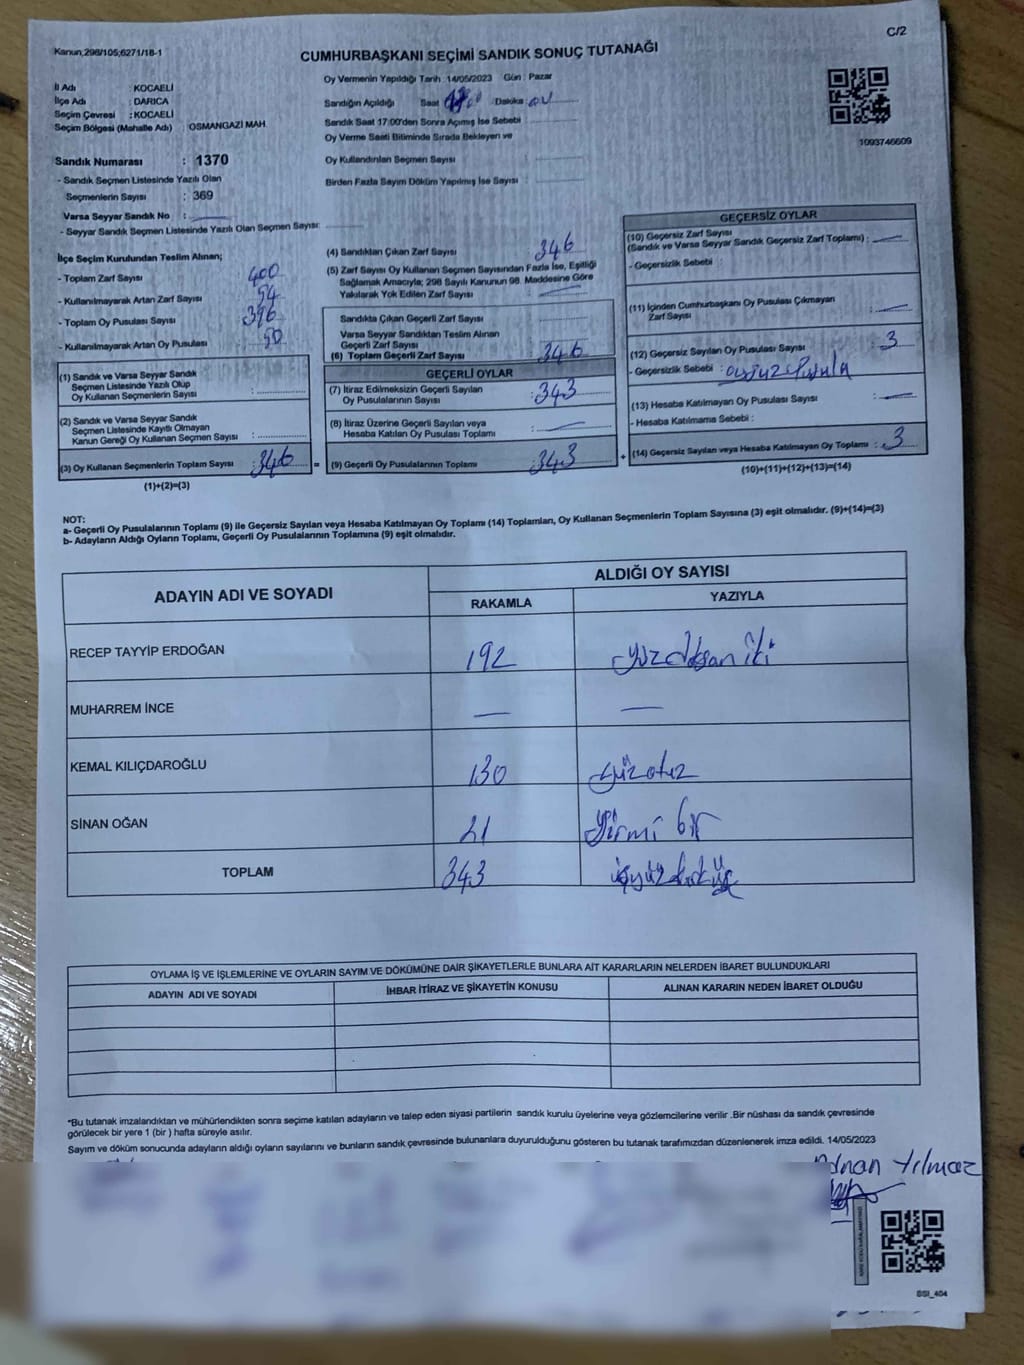 C/2
Kanun;298/105;6271/18-1
CUMHURBAŞKANI SEÇİMİ SANDIK SONUÇ TUTANAĞI
İl Adı : KOCAELİ
İlçe Adı : DARICA
Seçim Çevresi : KOCAELİ
Seçim Bölgesi (Mahalle Adı) : OSMANGAZİ MAH.
Sandık Numarası : 1370
- Sandık Seçmen Listesinde Yazılı Olan
Seçmenlerin Sayısı : 369
Varsa Seyyar Sandık No :
- Seyyar Sandık Seçmen Listesinde Yazılı Olan Seçmen Sayısı:
Oy Vermenin Yapıldığı Tarih :14/05/2023 Gün : Pazar
Sandığın Açıldığı Saat Dakika :
Sandık Saat 17:00'den Sonra Açımış İse Sebebi
Oy Verme Saati Bitiminde Sırada Bekleyen ve
Oy Kullandırılan Seçmen Sayısı :
Birden Fazla Sayım Döküm Yapılmış İse Sayısı :
1093746609
İlçe Seçim Kurulundan Teslim Alınan;
- Toplam Zarf Sayısı 400
- Kullanılmayarak Artan Zarf Sayısı 54
- Toplam Oy Pusulası Sayısı 396
- Kullanılmayarak Artan Oy Pusulası 50
(1) Sandık ve Varsa Seyyar Sandık
Seçmen Listesinde Yazılı Olup
Oy Kullanan Seçmenlerin Sayısı :
(2) Sandık ve Varsa Seyyar Sandık
Seçmen Listesinde Kayıtlı Olmayan
Kanun Gereği Oy Kullanan Seçmen Sayısı :
(3) Oy Kullanan Seçmenlerin Toplam Sayısı : 346 =
(1)+(2)=(3)
(4) Sandıktan Çıkan Zarf Sayısı 346
(5) Zarf Sayısı Oy Kullanan Seçmen Sayısından Fazla İse, Eşitliği
Sağlamak Amacıyla; 298 Sayılı Kanunun 98. Maddesine Göre
Yakılarak Yok Edilen Zarf Sayısı
Sandıkta Çıkan Geçerli Zarf Sayısı :
Varsa Seyyar Sandıktan Teslim Alınan
Geçerli Zarf Sayısı :
(6) Toplam Geçerli Zarf Sayısı : 346
GEÇERLİ OYLAR
(7) İtiraz Edilmeksizin Geçerli Sayılan
Oy Pusulalarının Sayısı : 343
(8) İtiraz Üzerine Geçerli Sayılan veya
Hesaba Katılan Oy Pusulası Toplamı :
(9) Geçerli Oy Pusulalarının Toplamı : 343 +
GEÇERSİZ OYLAR
(10) Geçersiz Zarf Sayısı
(Sandık ve Varsa Seyyar Sandık Geçersiz Zarf Toplamı) :
- Geçersizlik Sebebi :
(11) İçinden Cumhurbaşkanı Oy Pusulası Çıkmayan
Zarf Sayısı :
(12) Geçersiz Sayılan Oy Pusulası Sayısı : 3
- Geçersizlik Sebebi :
(13) Hesaba Katılmayan Oy Pusulası Sayısı :
- Hesaba Katılmama Sebebi :
(14) Geçersiz Sayılan veya Hesaba Katılmayan Oy Toplamı : 3
(10)+(11)+(12)+(13)=(14)
NOT:
a- Geçerli Oy Pusulalarının Toplamı (9) ile Geçersiz Sayılan veya Hesaba Katılmayan Oy Toplamı (14) Toplamları, Oy Kullanan Seçmenlerin Toplam Sayısına (3) eşit olmalıdır. (9)+(14)=(3)
b- Adayların Aldığı Oyların Toplamı, Geçerli Oy Pusulalarının Toplamına (9) eşit olmalıdır.
ADAYIN ADI VE SOYADI ALDIĞI OY SAYISI
RAKAMLA YAZIYLA
RECEP TAYYİP ERDOĞAN 192 yüzdoksan iki
MUHARREM İNCE — —
KEMAL KILIÇDAROĞLU 130 yüzotuz
SİNAN OĞAN 21 yirmi bir
TOPLAM 343 üçyüzkırküç
OYLAMA İŞ VE İŞLEMLERİNE VE OYLARIN SAYIM VE DÖKÜMÜNE DAİR ŞİKAYETLERLE BUNLARA AİT KARARLARIN NELERDEN İBARET BULUNDUKLARI
ADAYIN ADI VE SOYADI İHBAR İTİRAZ VE ŞİKAYETİN KONUSU ALINAN KARARIN NEDEN İBARET OLDUĞU
"Bu tutanak imzalandıktan ve mühürlendikten sonra seçime katılan adayların ve talep eden siyasi partilerin sandık kurulu üyelerine veya gözlemcilerine verilir .Bir nüshası da sandık çevresinde
görülecek bir yere 1 (bir ) hafta süreyle asılır.
Sayım ve döküm sonucunda adayların aldığı oyların sayılarını ve bunların sandık çevresinde bulunanlara duyurulduğunu gösteren bu tutanak tarafımızdan düzenlenerek imza edildi. 14/05/2023
Adnan Yılmaz
SSI_404